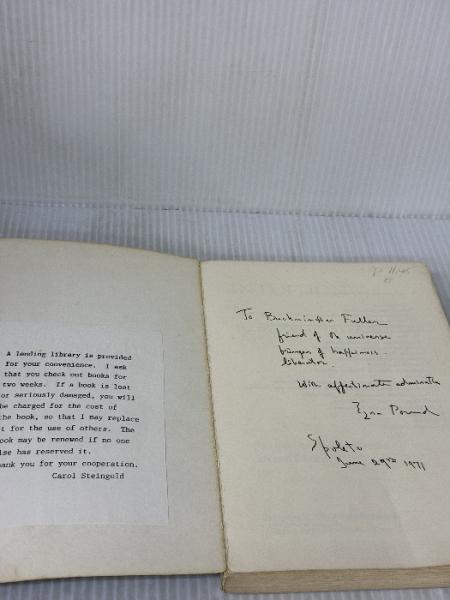 A lending library is provided
for your convenience. I ask
that you check out books for
two weeks. If a book is lost
or seriously damaged, you will
be charged for the cost of
the book, so that I may replace
t for the use of others. The
ook may be renewed if no one
lse has reserved it.
hank you for your cooperation.
Carol Steingold
To Buckminster Fuller
friend of the universe
bringer of happiness.
liberator.
With affectionate admiration
Ezra Pound
Spoleto
June 29 1971